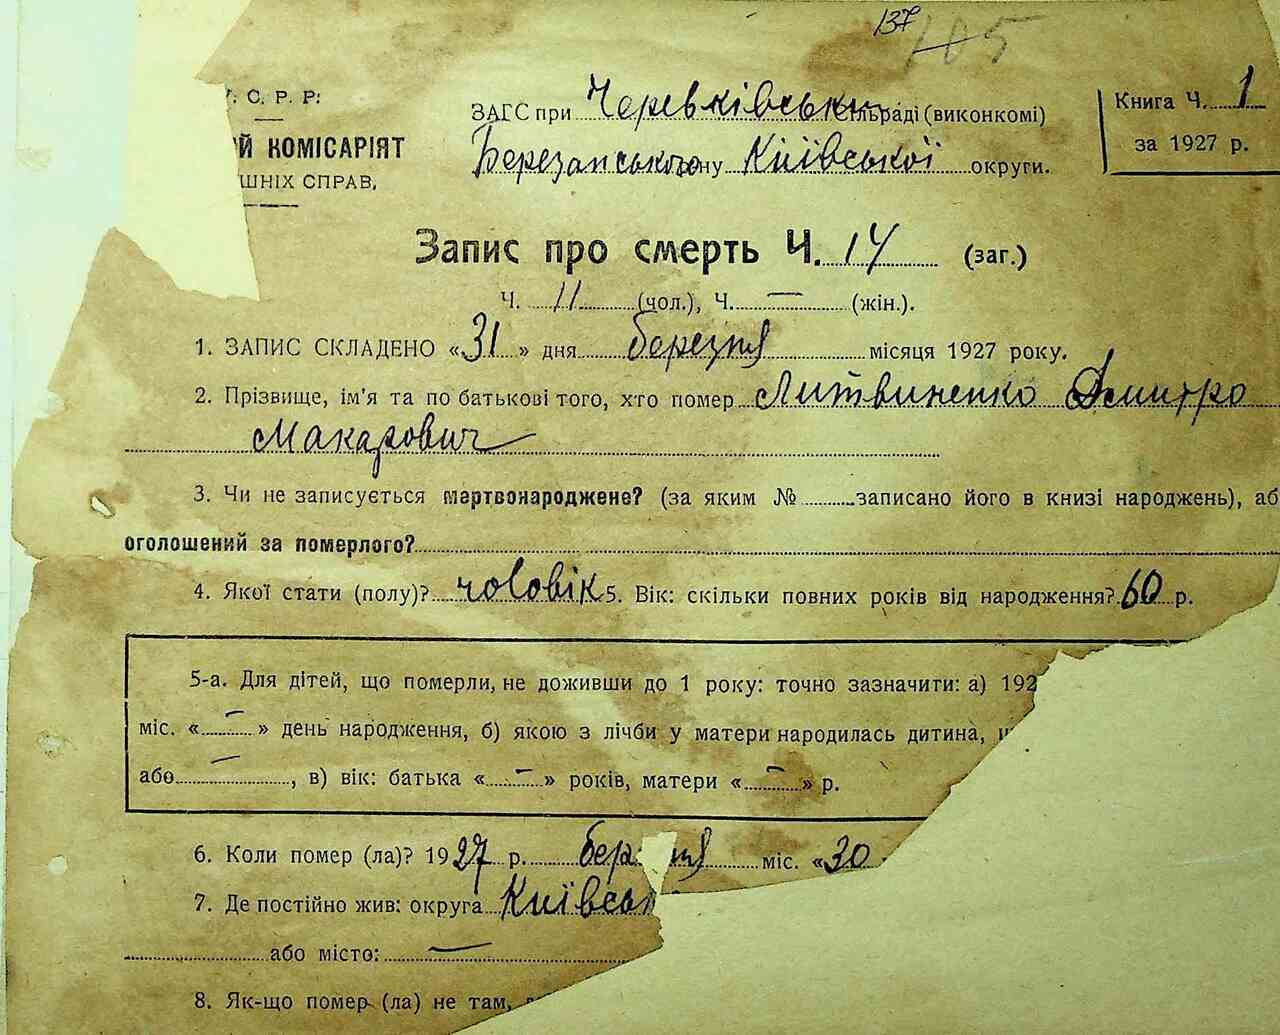 137 105
У. С. Р. Р.
ЗАГС при Черевківськ сільраді (виконкомі)
Книга Ч. 1
КОМІСАРІЯТ
Березанського Київської округи.
за 1927 р.
СПРАВ,
Запис про смерть Ч. 14 (заг.)
Ч. 11 (чол.), Ч. — (жін.).
1. ЗАПИС СКЛАДЕНО «31» дня березня місяця 1927 року.
2. Прізвище, ім'я та по батькові того, хто помер Литвиненко Дмитро
Макарович
3. Чи не записується мертвонароджене? (за яким № записано його в книзі народжень), аб
оголошений за померлого?
4. Якої стати (полу)? чоловік 5. Вік: скільки повних років від народження? 60 р.
5-а. Для дітей, що померли, не доживши до 1 року: точно зазначити: а) 192
міс. «—» день народження, б) якою з лічби у матери народилась дитина,
або —, в) вік: батька «—» років, матери «—» р.
6. Коли помер (ла)? 1927 р. березня міс. «30
7. Де постійно жив: округа Київськ
або місто: —
8. Як-що помер (ла) не там,